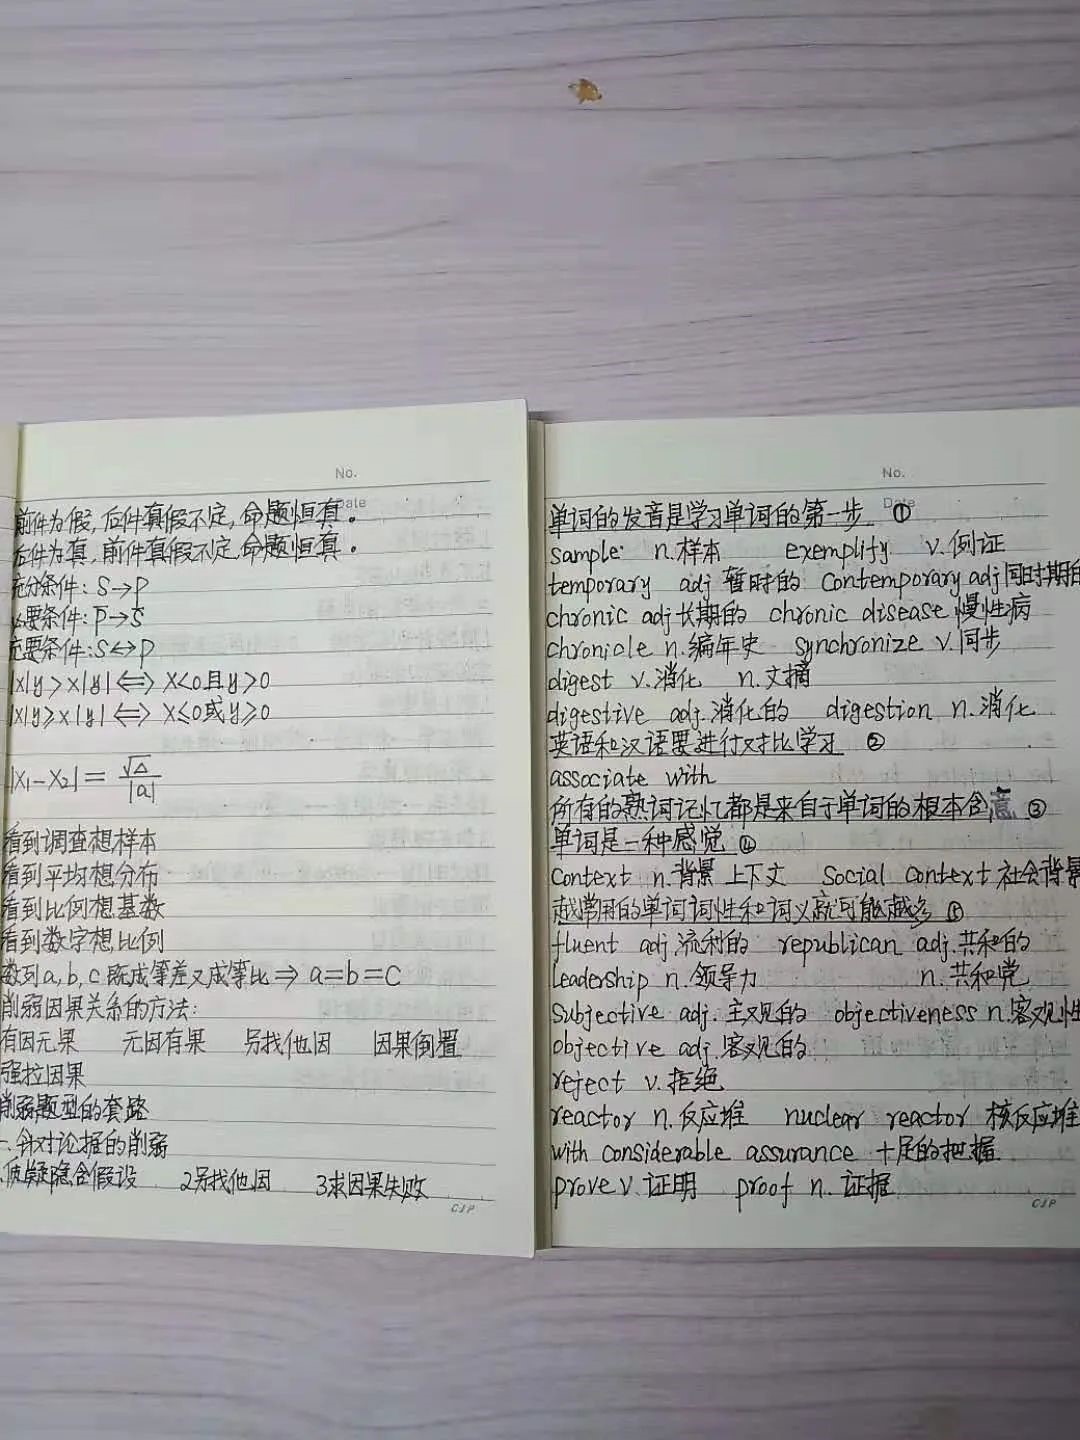 No.
Date
前件为假,后件真假不定,命题恒真。
后件为真,前件真假不定,命题恒真。
充分条件:S→P
必要条件:P̄→S̄
充要条件:S↔P
|x|y>x|y|⟺ x<0且y>0
|x|y≥x|y|⟺ x≤0或y≥0
|x₁-x₂|=√△/|a|
看到调查想样本
看到平均想分布
看到比例想基数
看到数字想比例
数列a,b,c既成等差又成等比⇒a=b=c
削弱因果关系的方法:
有因无果 无因有果 另找他因 因果倒置
强拉因果
削弱题型的套路
一.针对论据的削弱
质疑隐含假设 2另找他因 3求因果失败
CJP
No.
Date
单词的发音是学习单词的第一步 ①
sample n.样本 exemplify v.例证
temporary adj 暂时的 contemporary adj同时期的
chronic adj长期的 chronic disease 慢性病
chronicle n.编年史 synchronize v.同步
digest v.消化 n.文摘
digestive adj.消化的 digestion n.消化
英语和汉语要进行对比学习 ②
associate with
所有的熟词记忆都是来自于单词的根本含意 ③
单词是一种感觉 ④
context n.背景 上下文 social context 社会背景
越常用的单词词性和词义就可能越多 ⑤
fluent adj.流利的 republican adj.共和的
leadership n.领导力 n.共和党
Subjective adj.主观的 objectiveness n.客观性
objective adj.客观的
reject v.拒绝
reactor n.反应堆 nuclear reactor 核反应堆
with considerable assurance 十足的把握
prove v.证明 proof n.证据
CJP